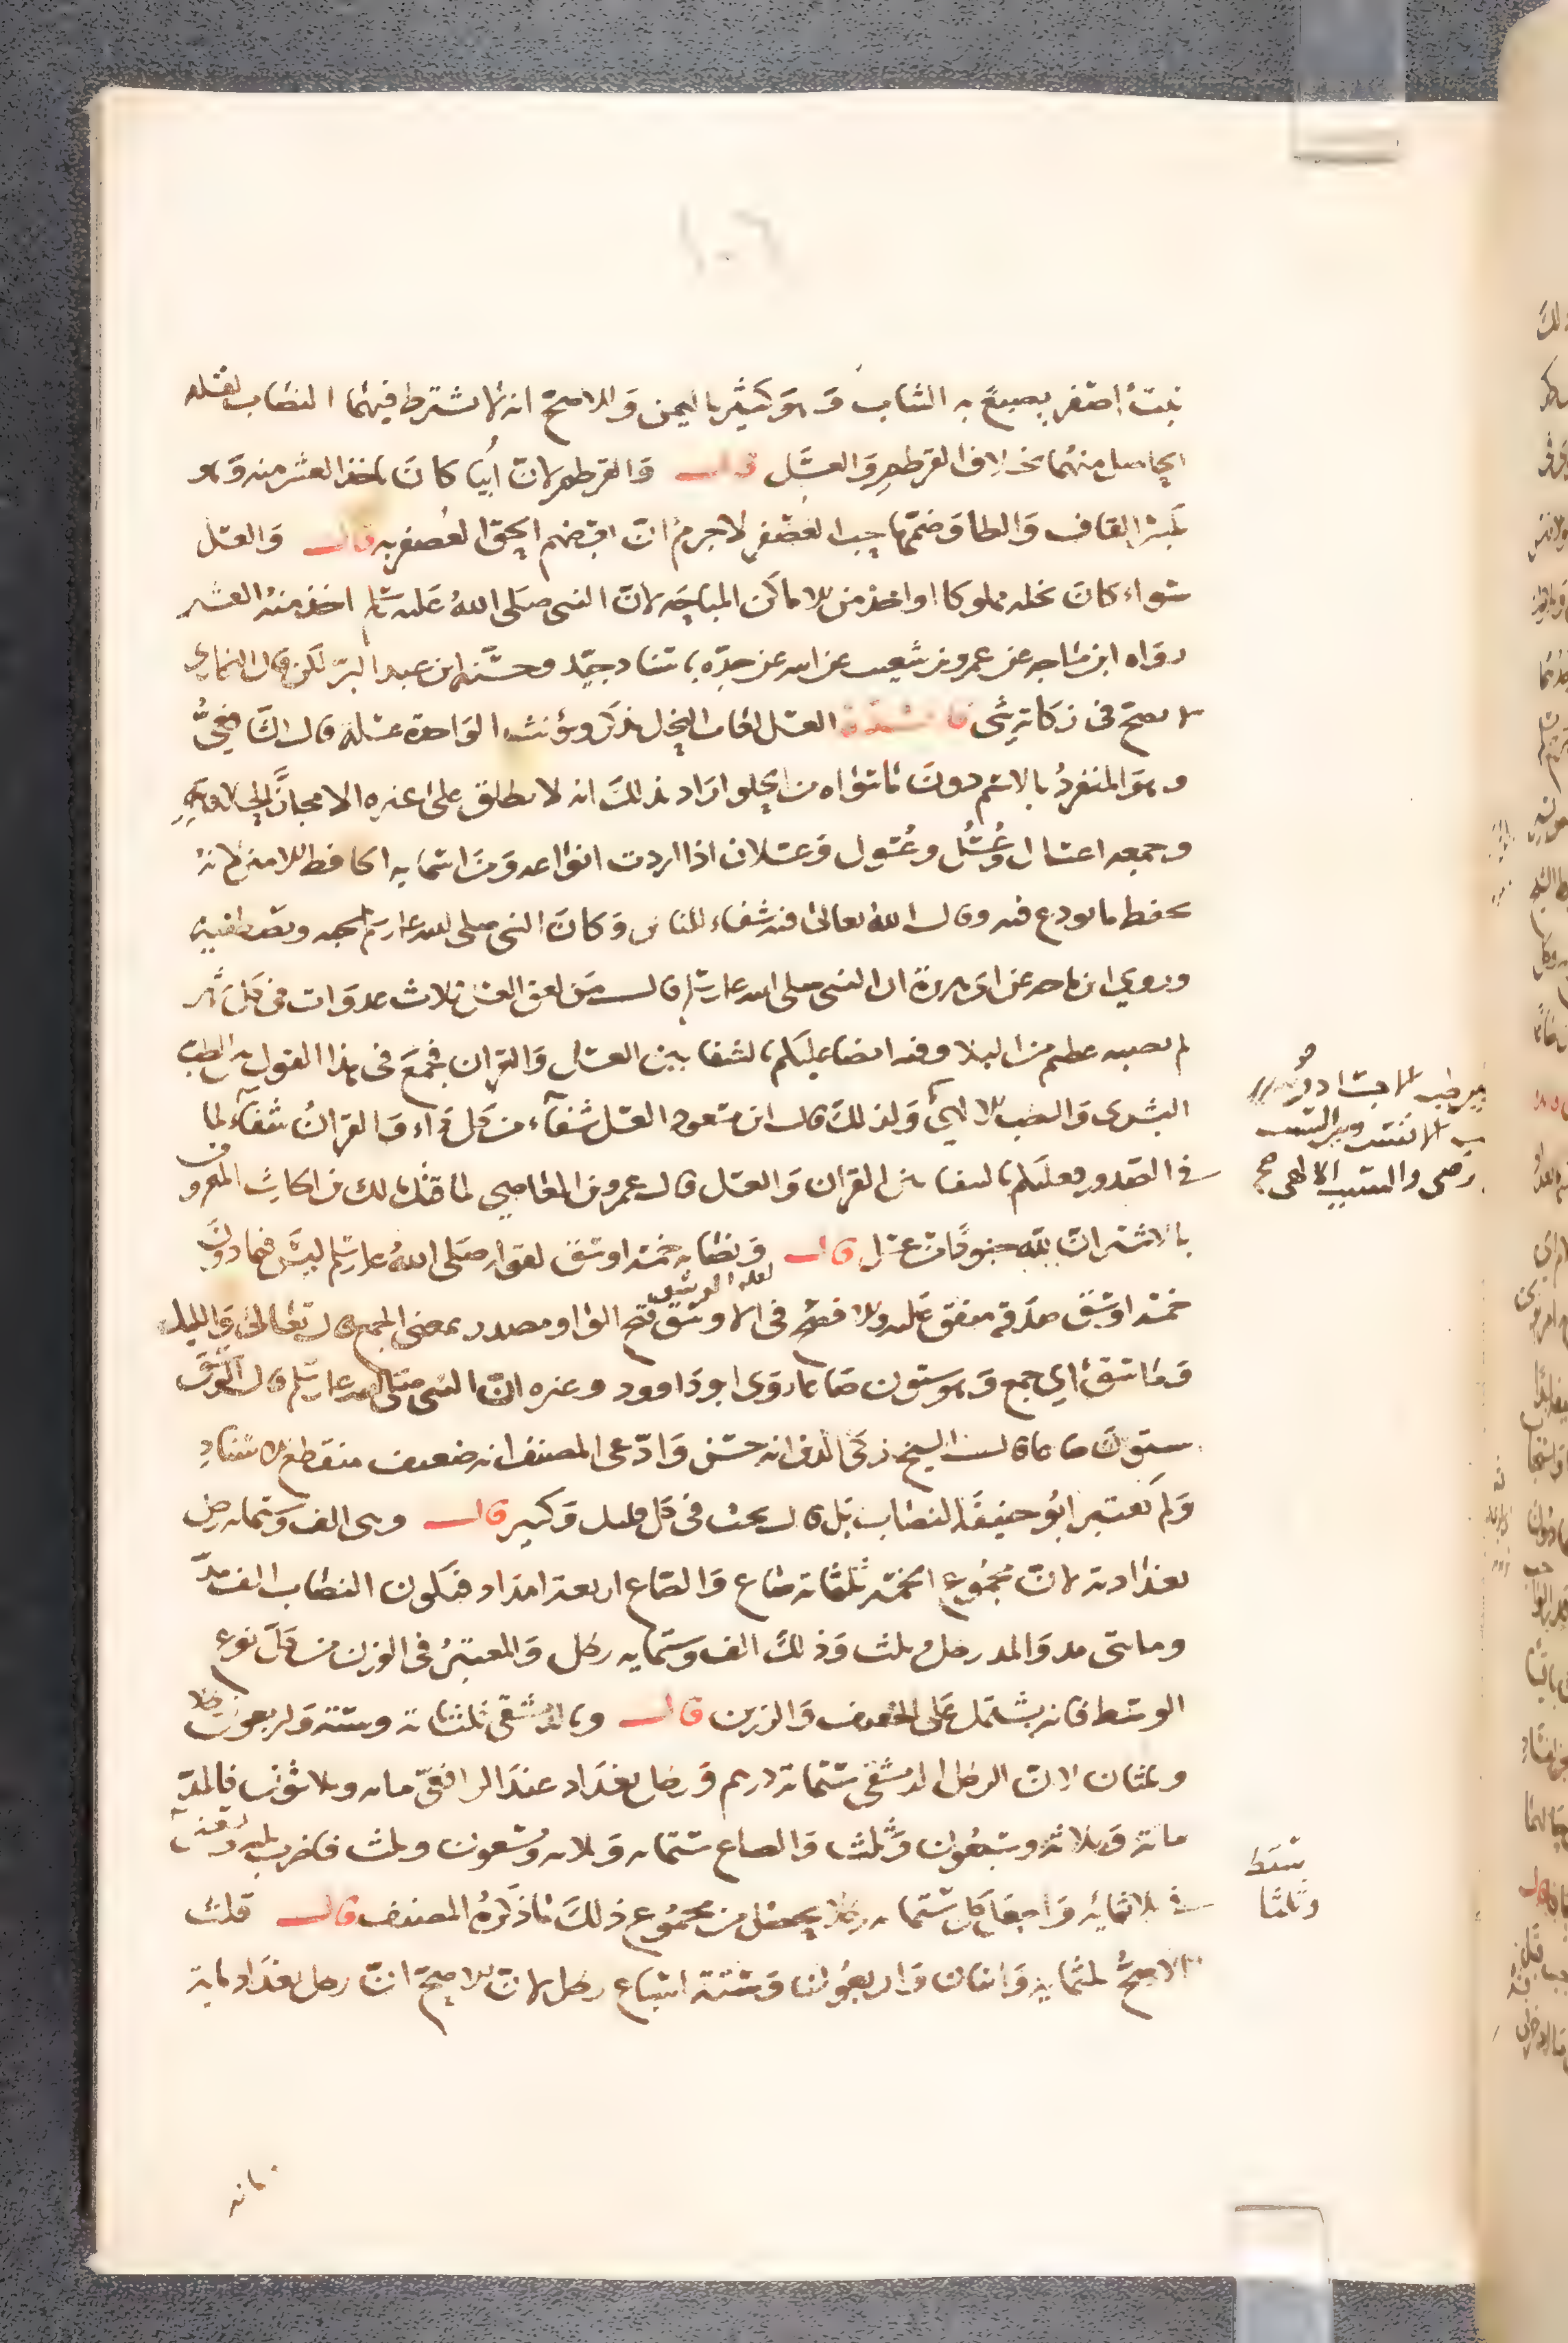 ١٠٦
نبت أصفر يصبغ به الثياب وهو كثير باليمن والاصح انه لا يشترط فيهما النصاب لقلة
الحاصل منهما بخلاف القرطم والعسل قال والقرطم لان أبيا كان ياخذ العشر منه وهو
بكسر القاف والطا وضمهما حب العصفر لا جرم ان بعضهم الحق العصفر به قال والعسل
سواء كان نحله مملوكا او اخذ من الاماكن المباحة لان النبي صلى الله عليه وسلم اخذ منه العشر
رواه ابن ماجه عن عمرو بن شعيب عن ابيه عن جده باسناد جيد وحسنه ابن عبد البر لكن قال البخاري
لا يصح في زكاته شى فائدة العسل لعاب النحل يذكر ويؤنث الواحدة عسلة قال الرافعي
وهو المنفرد بالاسم دون ما سواه من الحلو اراد بذلك انه لا يطلق على غيره الا مجازا لحلاوته
وجمعه اعسال وعُسُل وعُسول وعسلان اذا اردت انواعه ومن اسمايه الحافظ الامين لانه
يحفظ ما يودع فيه وقال الله تعالى فيه شفاء للناس وكان النبي صلى الله عليه وسلم يحبه ويصطفيه
وروى ابن ماجه عن ابي هريرة ان النبي صلى الله عليه وسلم قال من لعق العسل ثلاث غدوات في كل شهر
لم يصبه عظيم من البلا وفيه ايضا عليكم بالشفا بين العسل والقران فجمع في هذا القول بين الطب
البشرى والطب الالهي ولذلك قال ابن مسعود العسل شفاء من كل داء والقران شفاء لما
في الصدور فعليكم بالشفا من القران والعسل قال عمرو بن العاصي لما قتل مالك بن الحارث المعروف
بالاشتر ان لله جنودا من عسل قال ونصابه خمسة اوسق لقوله صلى الله عليه وسلم ليس فيما دون
خمسة اوسق صدقة متفق عليه والافصح في الاوسق فتح الواو مصدر بمعنى الجمع قال تعالى والليل
لعله الوسق
وما وسق اي جمع وهو ستون صاعا روى ابو داوود وغيره ان النبي صلى الله عليه وسلم قال الوسق
ستون صاعا قال الشيخ زكي الدين انه حسن وادعى المصنف انه ضعيف منقطع الاسناد
ولم يعتبر ابو حنيفة النصاب بل قال يجب في كل قليل وكثير قال وهي الف وستمائة رطل
بغدادية لان مجموع الخمسة ثلثمائة صاع والصاع اربعة امداد فيكون النصاب الف مد
ومايتى مد والمد رطل وثلث وذلك الف وستمايه رطل والمعتبر في الوزن من كل نوع
الوسط فانه يشتمل على الخفيف والرزين قال وبالدمشقي ثلثمائة وستة واربعون رطلا
وثلثان لان الرطل الدمشقي ستمائة درهم ورطل بغداد عند الرافعي مائه وثلاثون فالمد
مائة وثلاثة وسبعون وثلث والصاع ستمائه وثلاثه وتسعون وثلث فاضرب
في ثلاثمائه واجعل كل ستمائه رطلا يحصل من مجموع ذلك ما ذكره المصنف قال قلت
الاصح ثلثمايه واثنان واربعون وستة اسباع رطل لان الاصح ان رطل بغداد مايه
والسبب الالهي صح
سقط
وثلثا
ثمانه